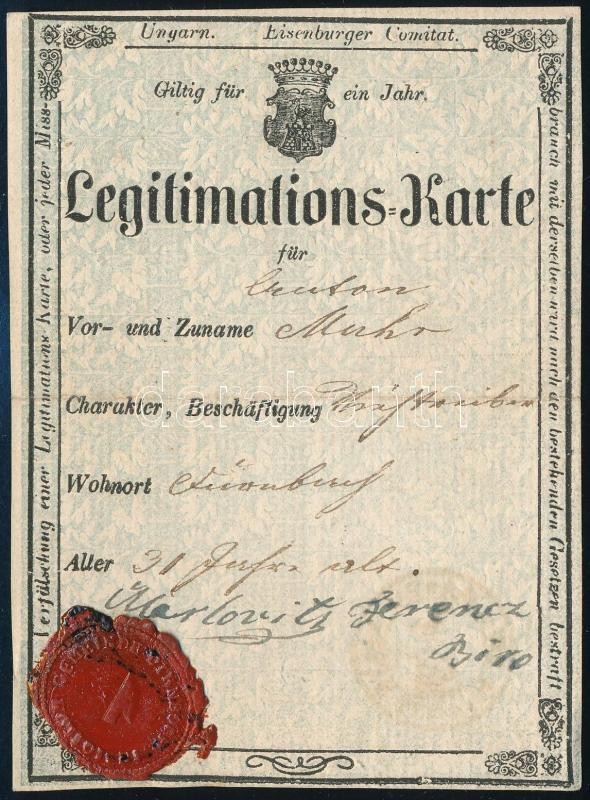 Ungarn. Eisenburger Comitat.
Giltig für ein Jahr.
Legitimations-Karte
für
Anton
Vor- und Zuname Muhr
Charakter, Beschäftigung Viehtreiber
Wohnort
Alter 31 Jahre alt.
Ferencz
Biro
Verfälschung einer Legitimations Karte, oder jeder Miss-
brauch mit derselben wird nach den bestehenden Gesetzen bestraft
darabanth